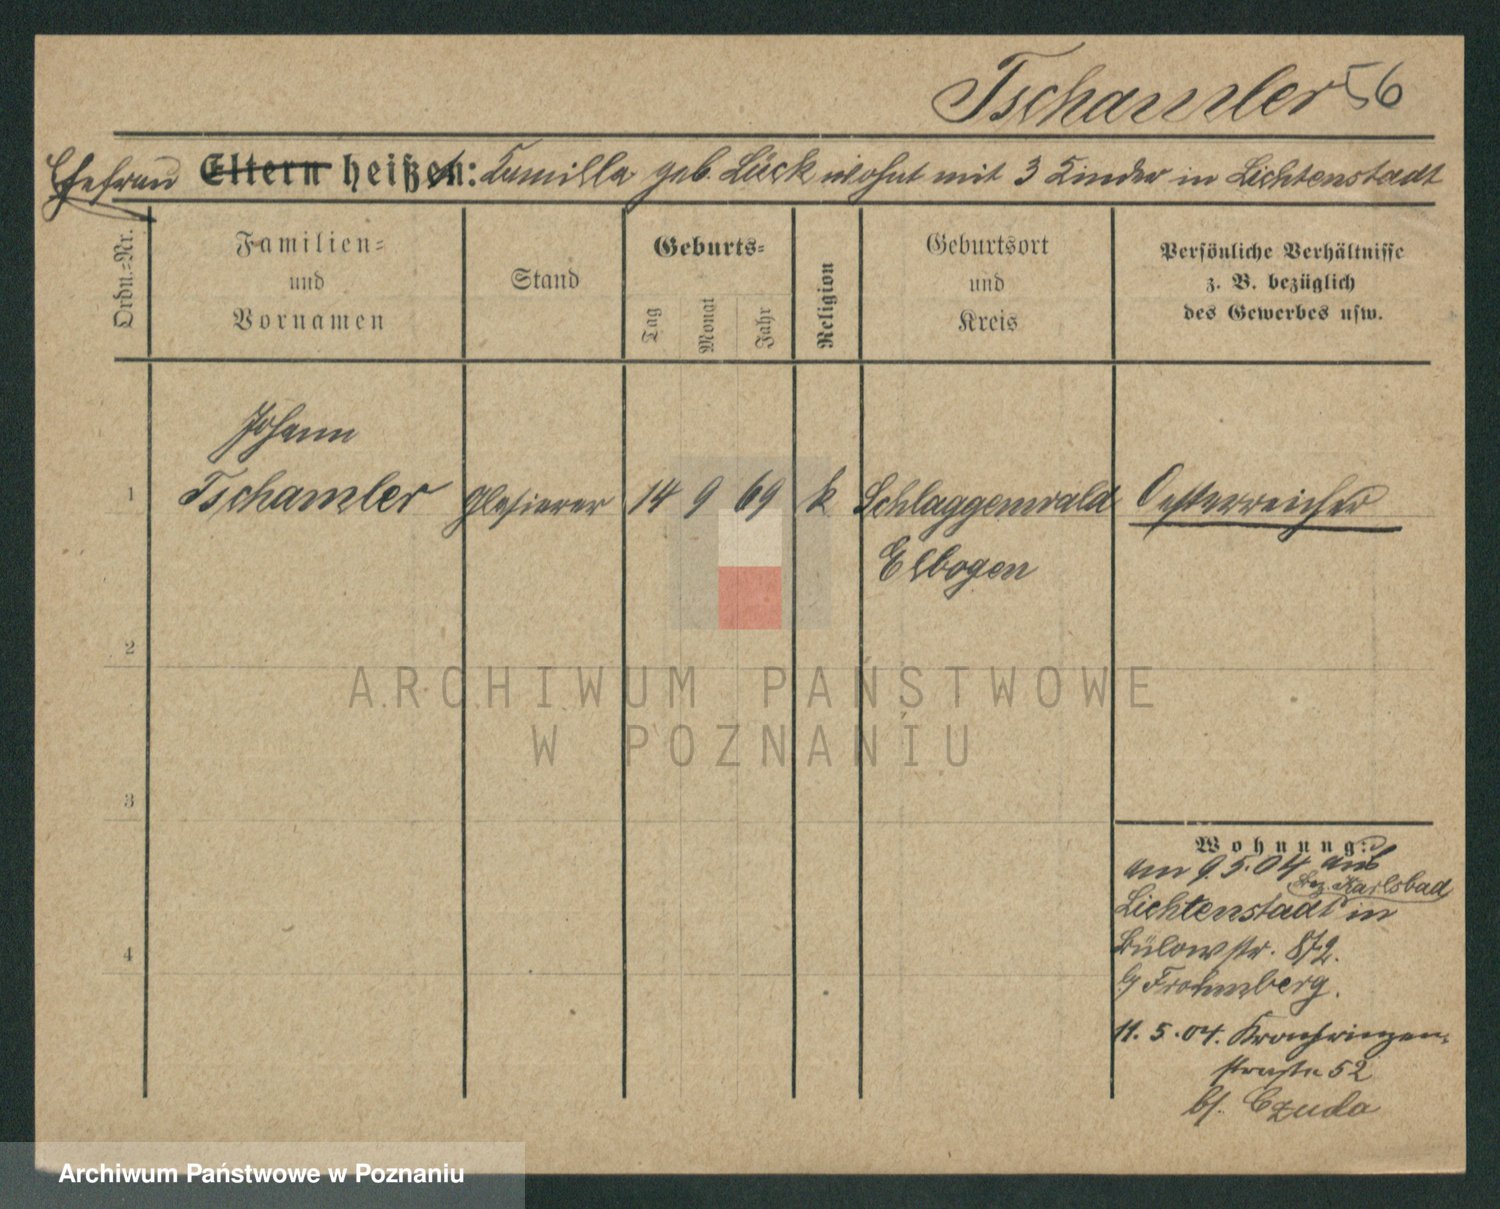 Tschamler 56
Ehefrau Eltern heißen: Kamilla geb. Lück wohnt mit 3 Kinder in Lichtenstadt
Ordn.-Nr.
Familien-
und
Vornamen
Stand
Geburts-
Tag
Monat
Jahr
Religion
Geburtsort
und
Kreis
Persönliche Verhältnisse
z. B. bezüglich
des Gewerbes usw.
Johann
1 Tschamler Glasierer 14 9 69 k Schlaggenwald Oesterreicher
Elbogen
2
ARCHIWUM PAŃSTWOWE
W POZNANIU
3
Wohnung:
am 9.5.04 aus
Bez. Karlsbad
Lichtenstadt in
4 Bülowstr.
b/ Frommberg.
11. 5. 04. Kronprinzen-
straße 52
b/. Czuda
Archiwum Państwowe w Poznaniu